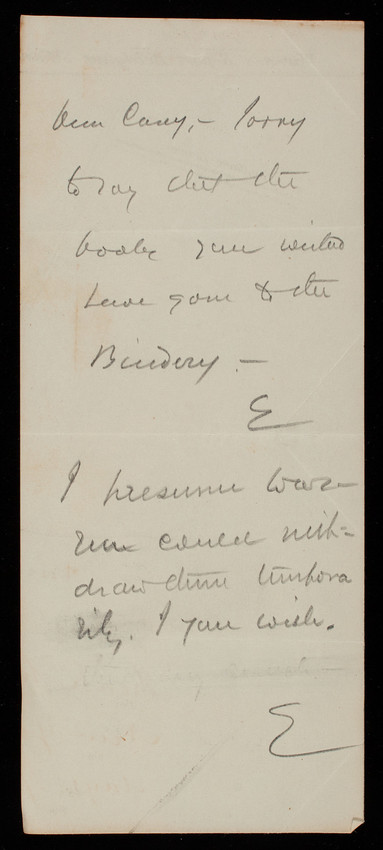 Dear Casey, – Sorry
to say that the
books you wished
have gone to the
Bindery. –
E
I presume
you could with=
draw them tempora
rily. If you wish.
E